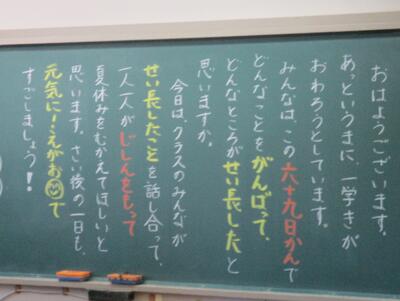 おはようございます。
あっというまに、一学きが
おわろうとしています。
みんなは、この六十九日かんで
どんなことをがんばって、
どんなところがせい長したと
思いますか。
今日は、クラスのみんなが
せい長したことを話し合って、
一人一人がじしんをもって
夏休みをむかえてほしいと
思います。さい後の一日も、
元気に!えがおで
すごしましょう!